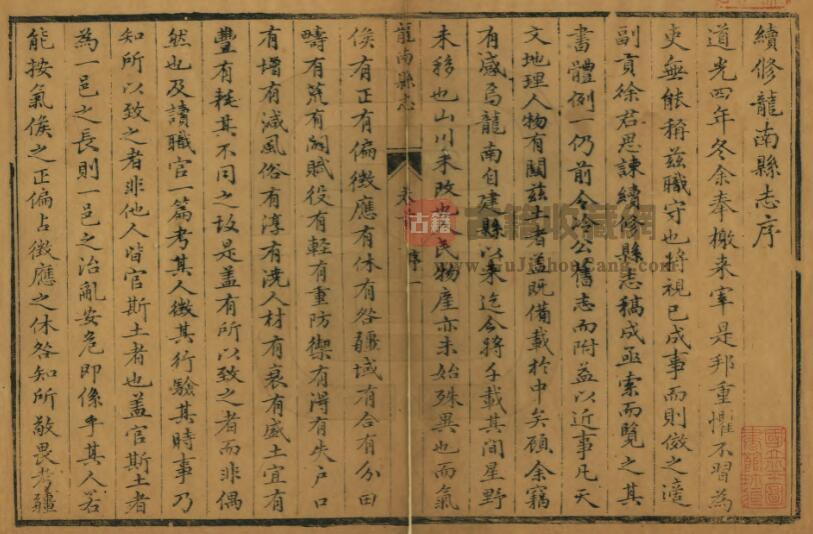 續修龍南縣志序
道光四年冬余奉檄来宰是邦重懼不習為
吏無能稱兹職守也將視已成事而則傚之適
副貢徐君思諫續修縣志稿成亟索而覽之其
書體例一仍前令冷公舊志而附益以近事凡天
文地理人物有關兹土者盖既備載於中矣顧余竊
有感焉龍南自建縣以来迄今將千載其間星野
未移也山川未改也人民物産亦未始殊異也而氣
龍南縣志
卷首
序
一
候有正有偏徵應有休有咎疆域有合有分田
疇有荒有闢賦役有輕有重防禦有得有失户口
有增有減風俗有淳有澆人材有衰有盛土宜有
豐有耗其不同之故是盖有所以致之者而非偶
然也及讀職官一篇考其人徵其行驗其時事乃
知所以致之者非他人皆官斯土者也盖官斯土者
為一邑之長則一邑之治亂安危即係乎其人若
能按氣候之正偏占徵應之休咎知所敬畏考疆
古籍
古籍收藏网
www.GuJiShouCang.com